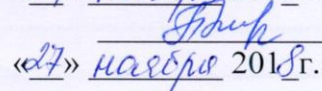 «27» ноября 2018 г.